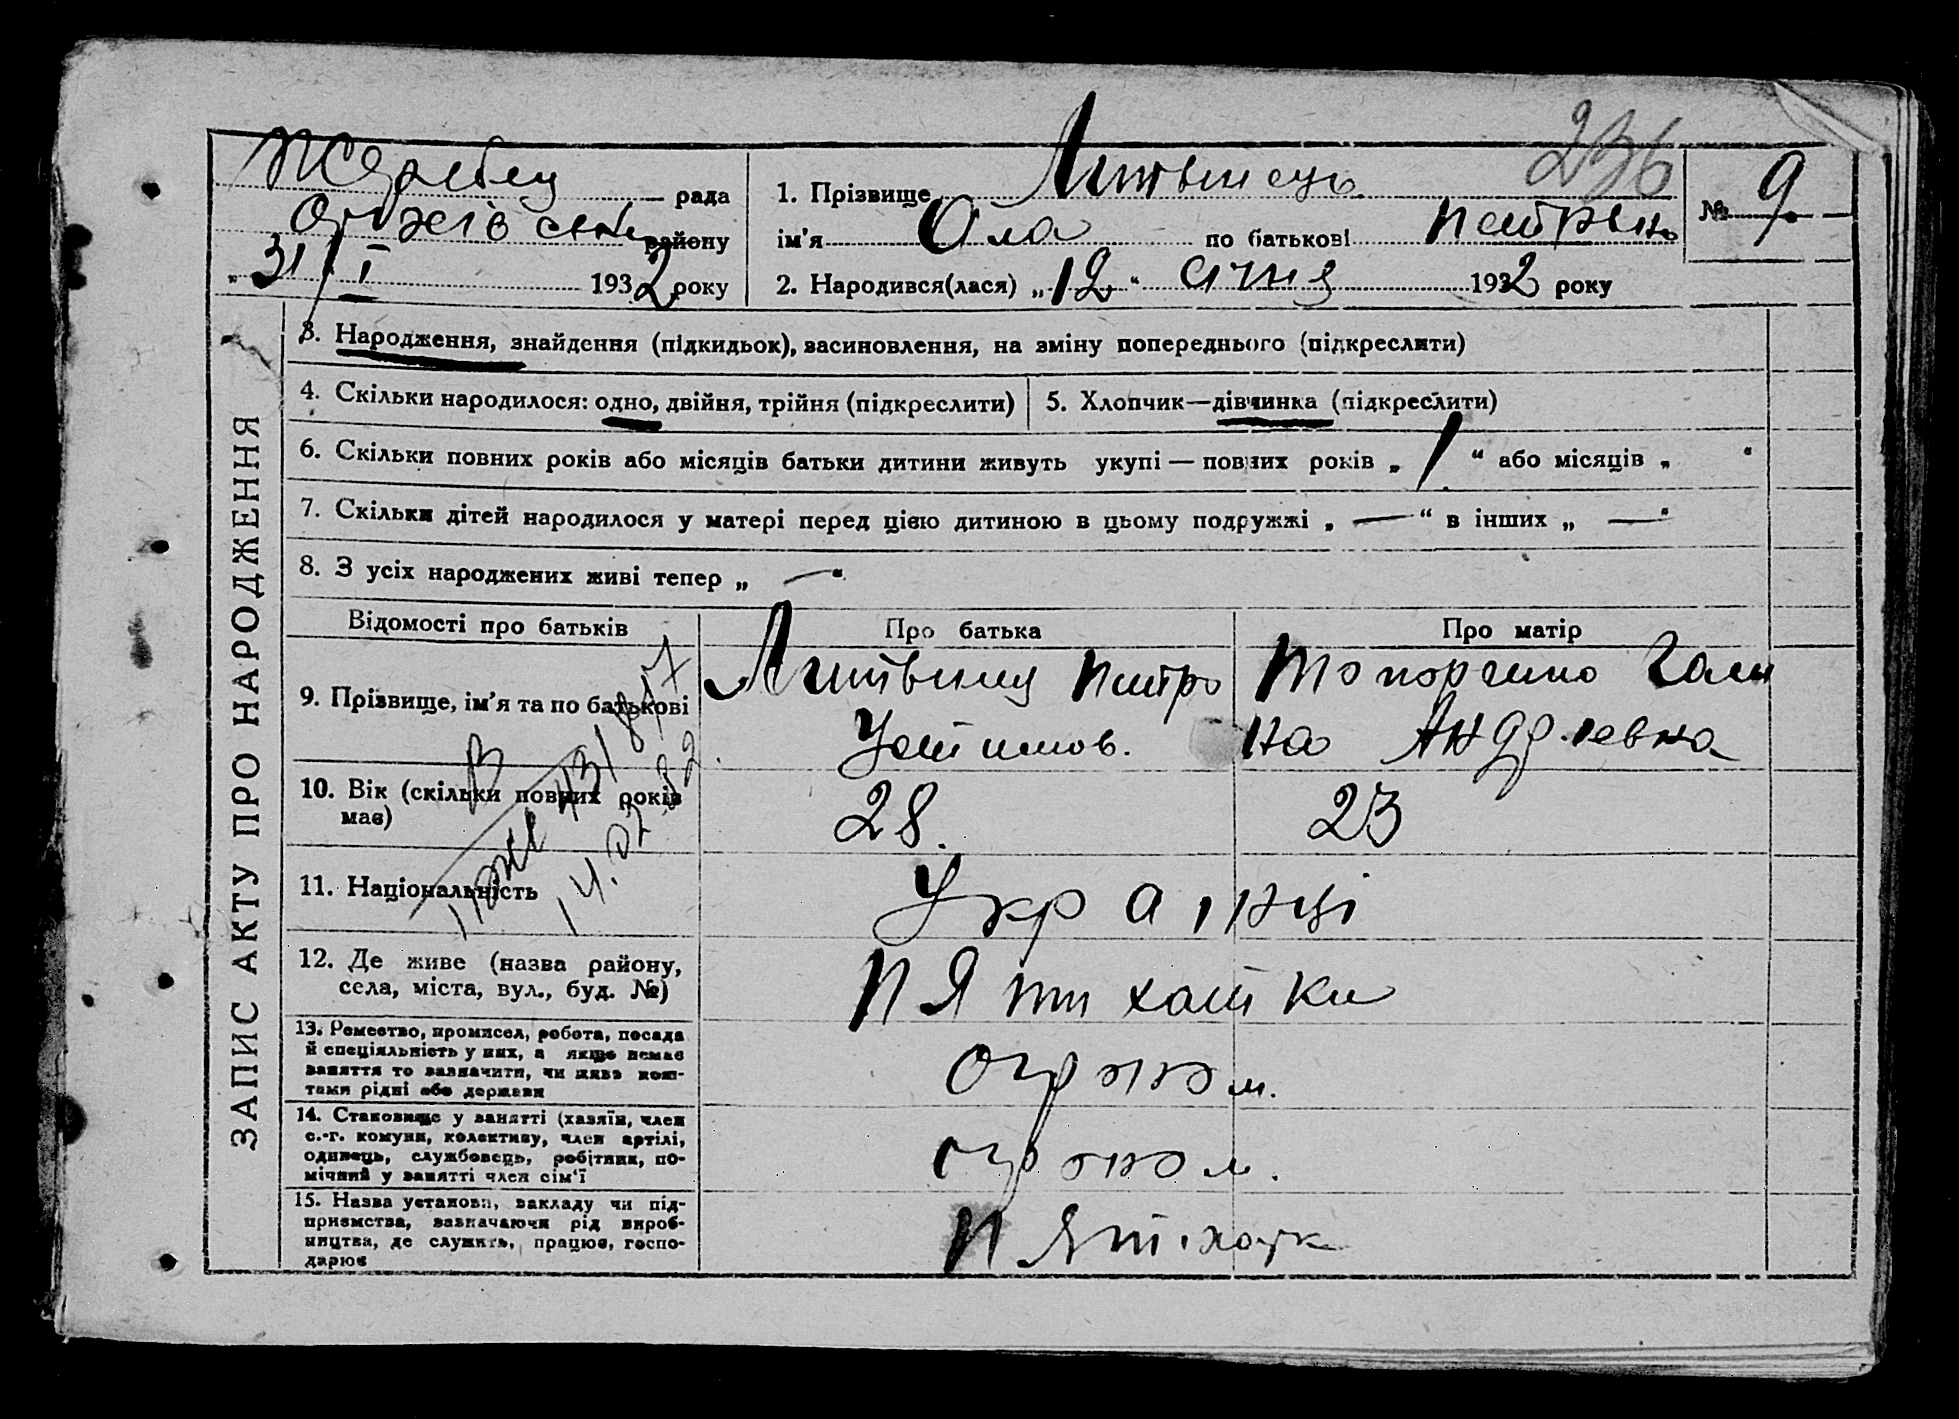 236
Жеребец рада
району
"31/I 1932 року
1. Прізвище Литвинець № 9
ім'я Ала по батькові Петрівн
2. Народився(лася) „12" січня 1932 року
ЗАПИС АКТУ ПРО НАРОДЖЕННЯ
3. Народження, знайдення (підкидьок), васиновлення, на зміну попереднього (підкреслити)
4. Скільки народилося: одно, двійня, трійня (підкреслити)
5. Хлопчик—дівчинка (підкреслити)
6. Скільки повних років або місяців батьки дитини живуть укупі — повних років „ 1 “ або місяців „ “
7. Скільки дітей народилося у матері перед цією дитиною в цьому подружжі „ — “ в інших „ — “
8. З усіх народжених живі тепер „ — “
Відомості про батьків Про батька Про матір
9. Прізвище, ім'я та по батькові
Литвинец Петро
Устимов.
Топоргина Гали
на Андріевна
10. Вік (скільки повних років
має)
28. 23
11. Національність
Українці
12. Де живе (назва району,
села, міста, вул., буд. №)
Пятихатки
13. Ремество, промисел, робота, посада
й спеціяльність у них, а якщо немає
заняття то зазначити, чи живе кош-
тами рідні або держави
агроном.
14. Становище у занятті (хазяїн, член
с.-г. комуни, колективу, член артілі,
одинець, службовець, робітник, по-
мічний у занятті член сім'ї
агроном.
15. Назва установи, закладу чи під-
приємства, зазначаючи рід вироб-
ництва, де служить, працює, госпо-
дарює
Пятихатк
14.02.82.